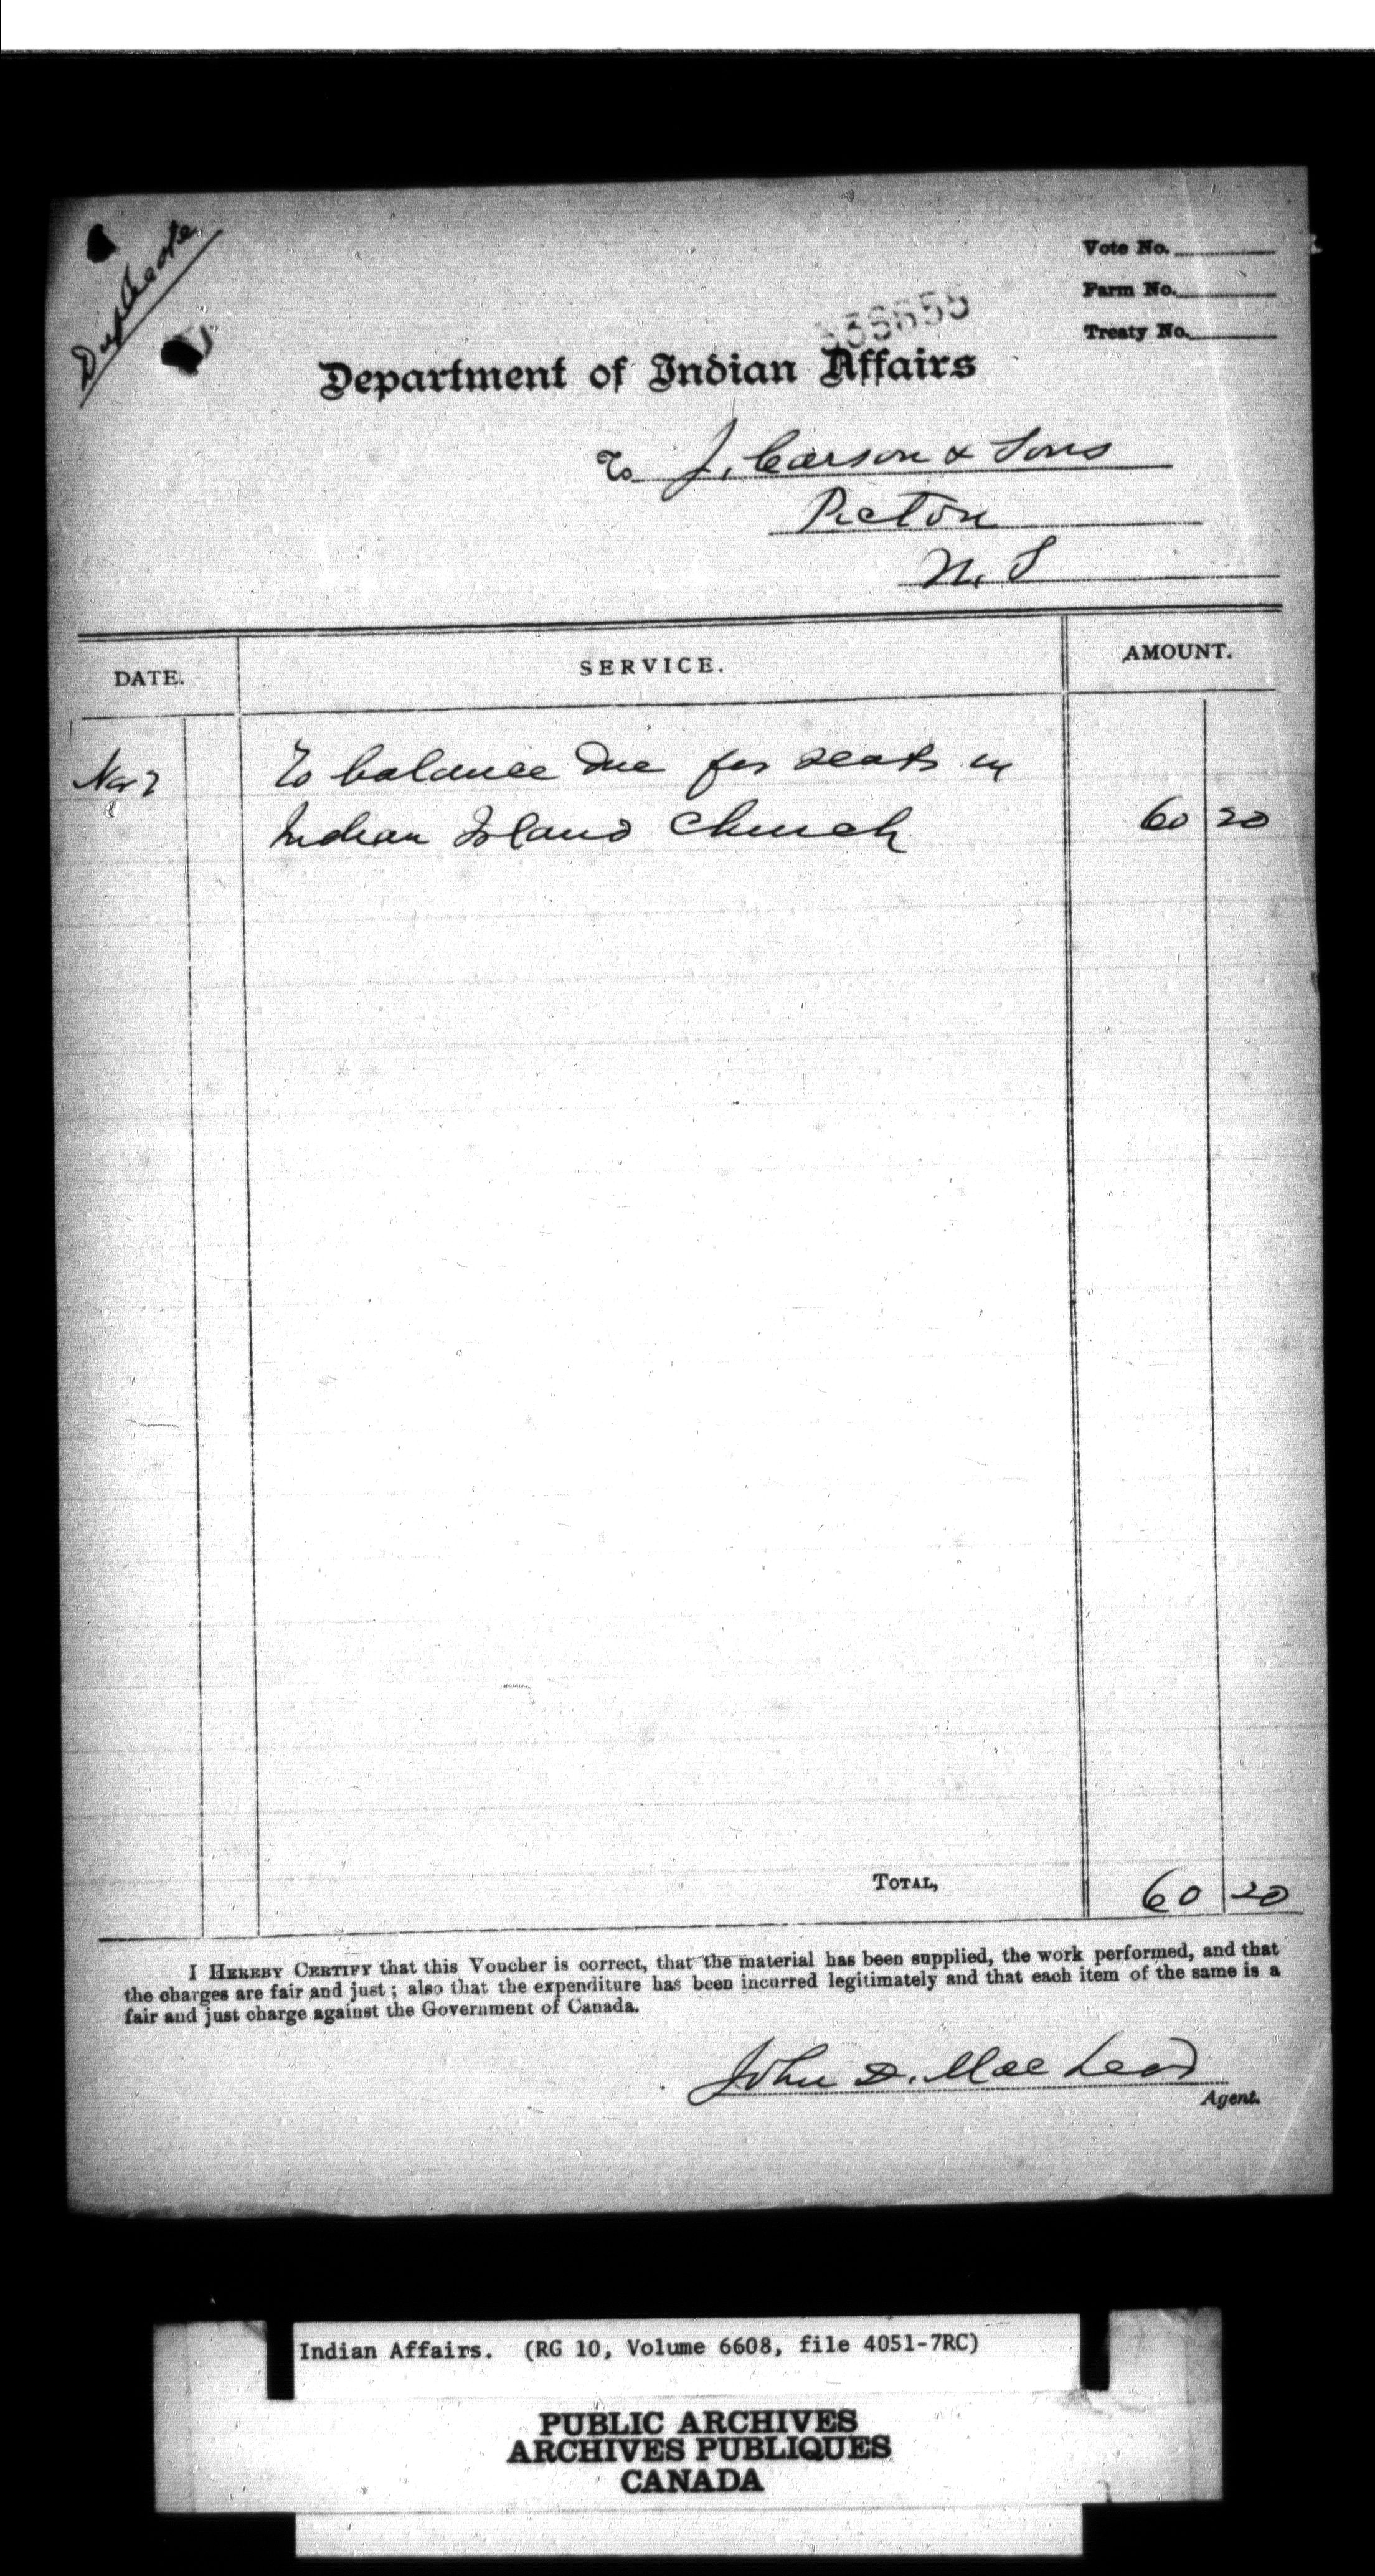 Duplicate
Vote No.
Farm No.
Treaty No.
336655
Department of Indian Affairs
To J. Carson & Sons
Pictou
N. S
DATE. SERVICE. AMOUNT.
Nov 7 To balance due for seats in
Indian Island Church 60 20
TOTAL, 60 20
I HEREBY CERTIFY that this Voucher is correct, that the material has been supplied, the work performed, and that
the charges are fair and just ; also that the expenditure has been incurred legitimately and that each item of the same is a
fair and just charge against the Government of Canada.
John D. MacLeod
Agent.
Indian Affairs. (RG 10, Volume 6608, file 4051-7RC)
PUBLIC ARCHIVES
ARCHIVES PUBLIQUES
CANADA